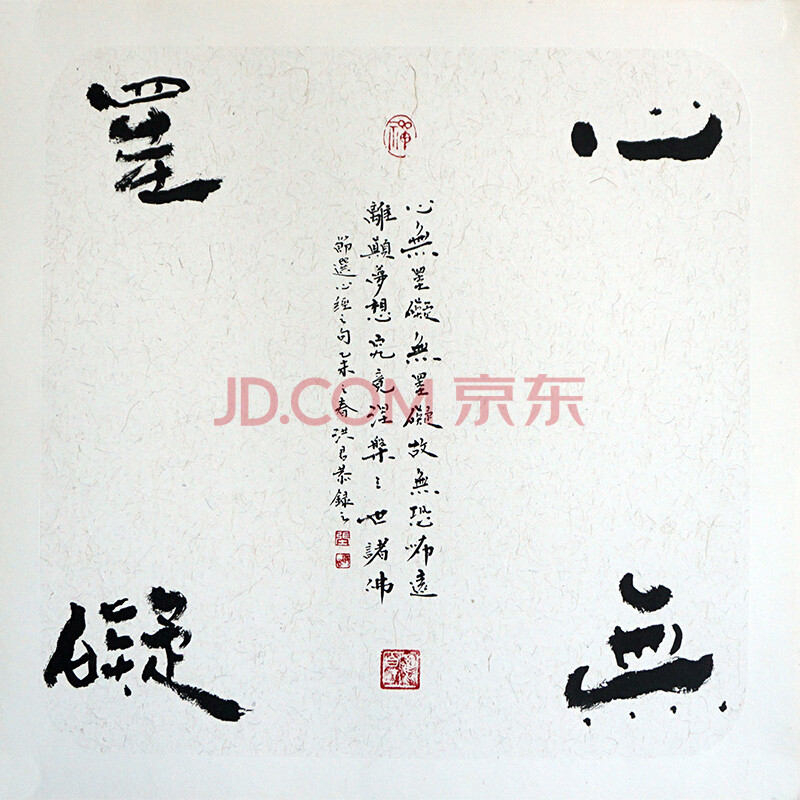 心
無
罣
礙
禪
心無罣礙無罣礙故無恐怖遠
離顛夢想究竟涅槃三世諸佛
節選心經之句乙未之春洪良恭録之
JD.COM 京东